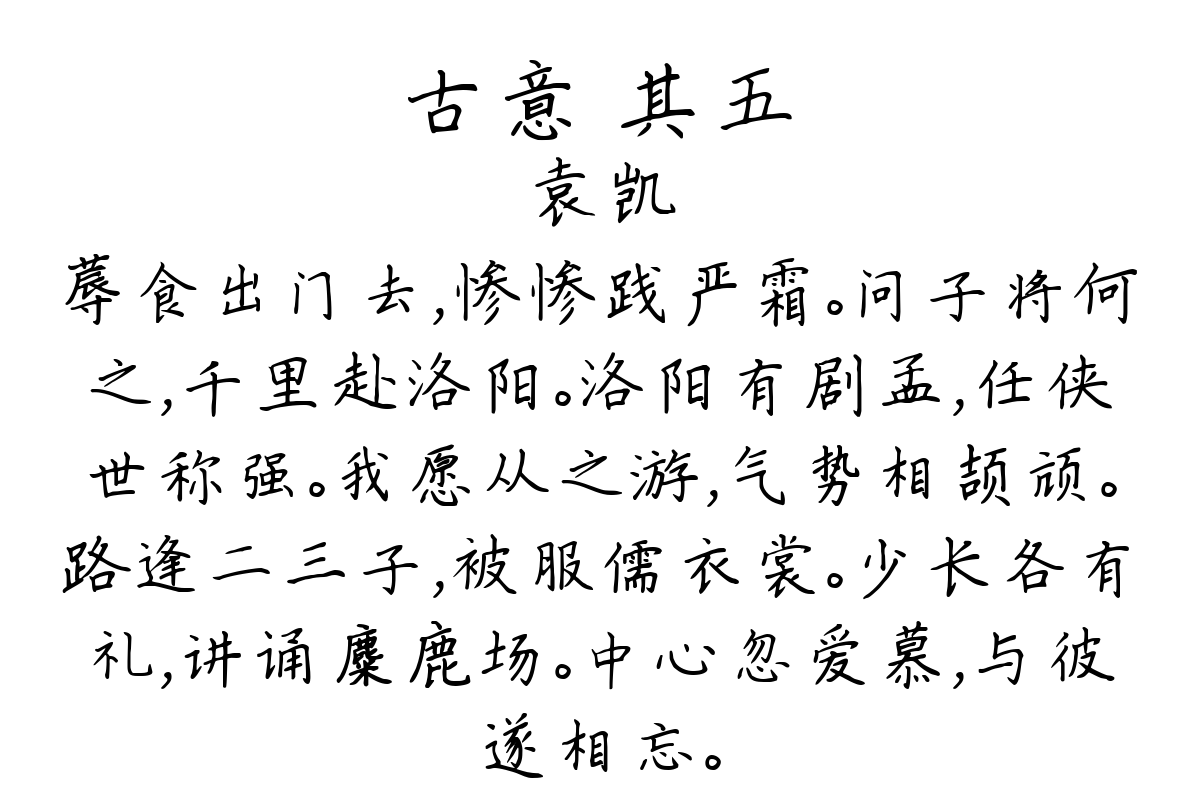 古意 其五
袁凯
蓐食出门去,惨惨践严霜。问子将何
之,千里赴洛阳。洛阳有剧孟,任侠
世称强。我愿从之游,气势相颉顽。
路逢二三子,被服儒衣裳。少长各有
礼,讲诵麋鹿场。中心忽爱慕,与彼
遂相忘。